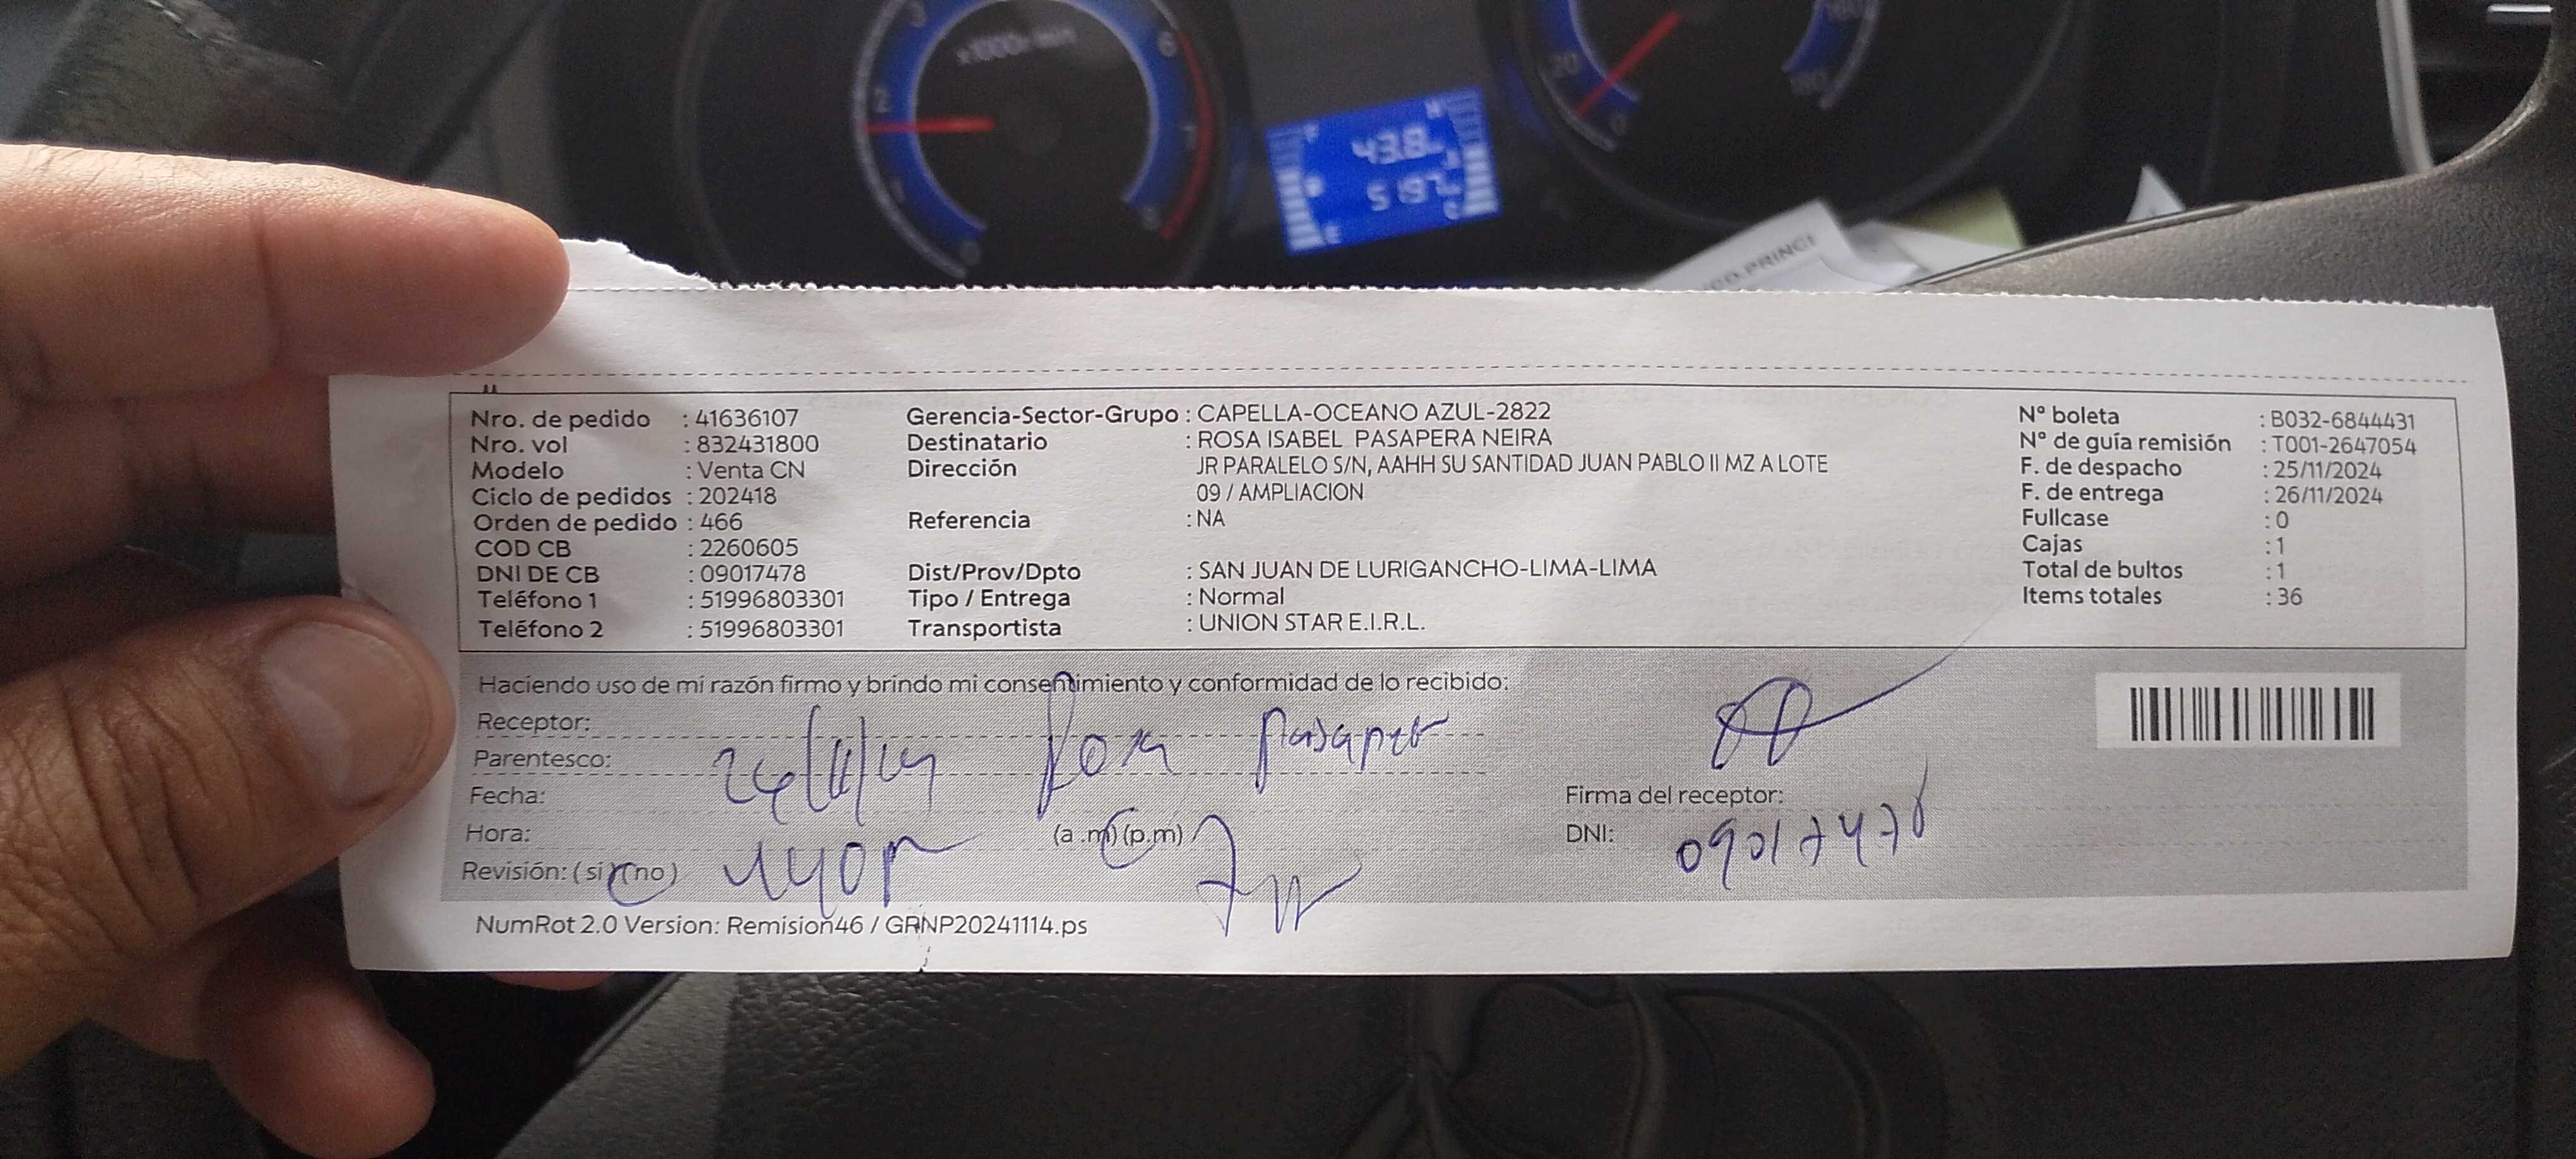 x1000r/min
43.8
5197
CO PRINCI
Nro. de pedido : 41636107
Nro. vol : 832431800
Modelo : Venta CN
Ciclo de pedidos : 202418
Orden de pedido : 466
COD CB : 2260605
DNI DE CB : 09017478
Teléfono 1 : 51996803301
Teléfono 2 : 51996803301
Gerencia-Sector-Grupo : CAPELLA-OCEANO AZUL-2822
Destinatario : ROSA ISABEL PASAPERA NEIRA
Dirección JR PARALELO S/N, AAHH SU SANTIDAD JUAN PABLO II MZ A LOTE
09 / AMPLIACION
Referencia : NA
Dist/Prov/Dpto : SAN JUAN DE LURIGANCHO-LIMA-LIMA
Tipo / Entrega : Normal
Transportista : UNION STAR E.I.R.L.
N° boleta : B032-6844431
N° de guía remisión : T001-2647054
F. de despacho : 25/11/2024
F. de entrega : 26/11/2024
Fullcase : 0
Cajas : 1
Total de bultos : 1
Items totales : 36
Haciendo uso de mi razón firmo y brindo mi consentimiento y conformidad de lo recibido:
Receptor:
Parentesco: Rosa Pasapera
Fecha:
Hora: (a.m) (p.m)
Revisión: ( si ) (no )
Firma del receptor:
DNI: 09017478
NumRot 2.0 Version: Remision46 / GRNP20241114.ps